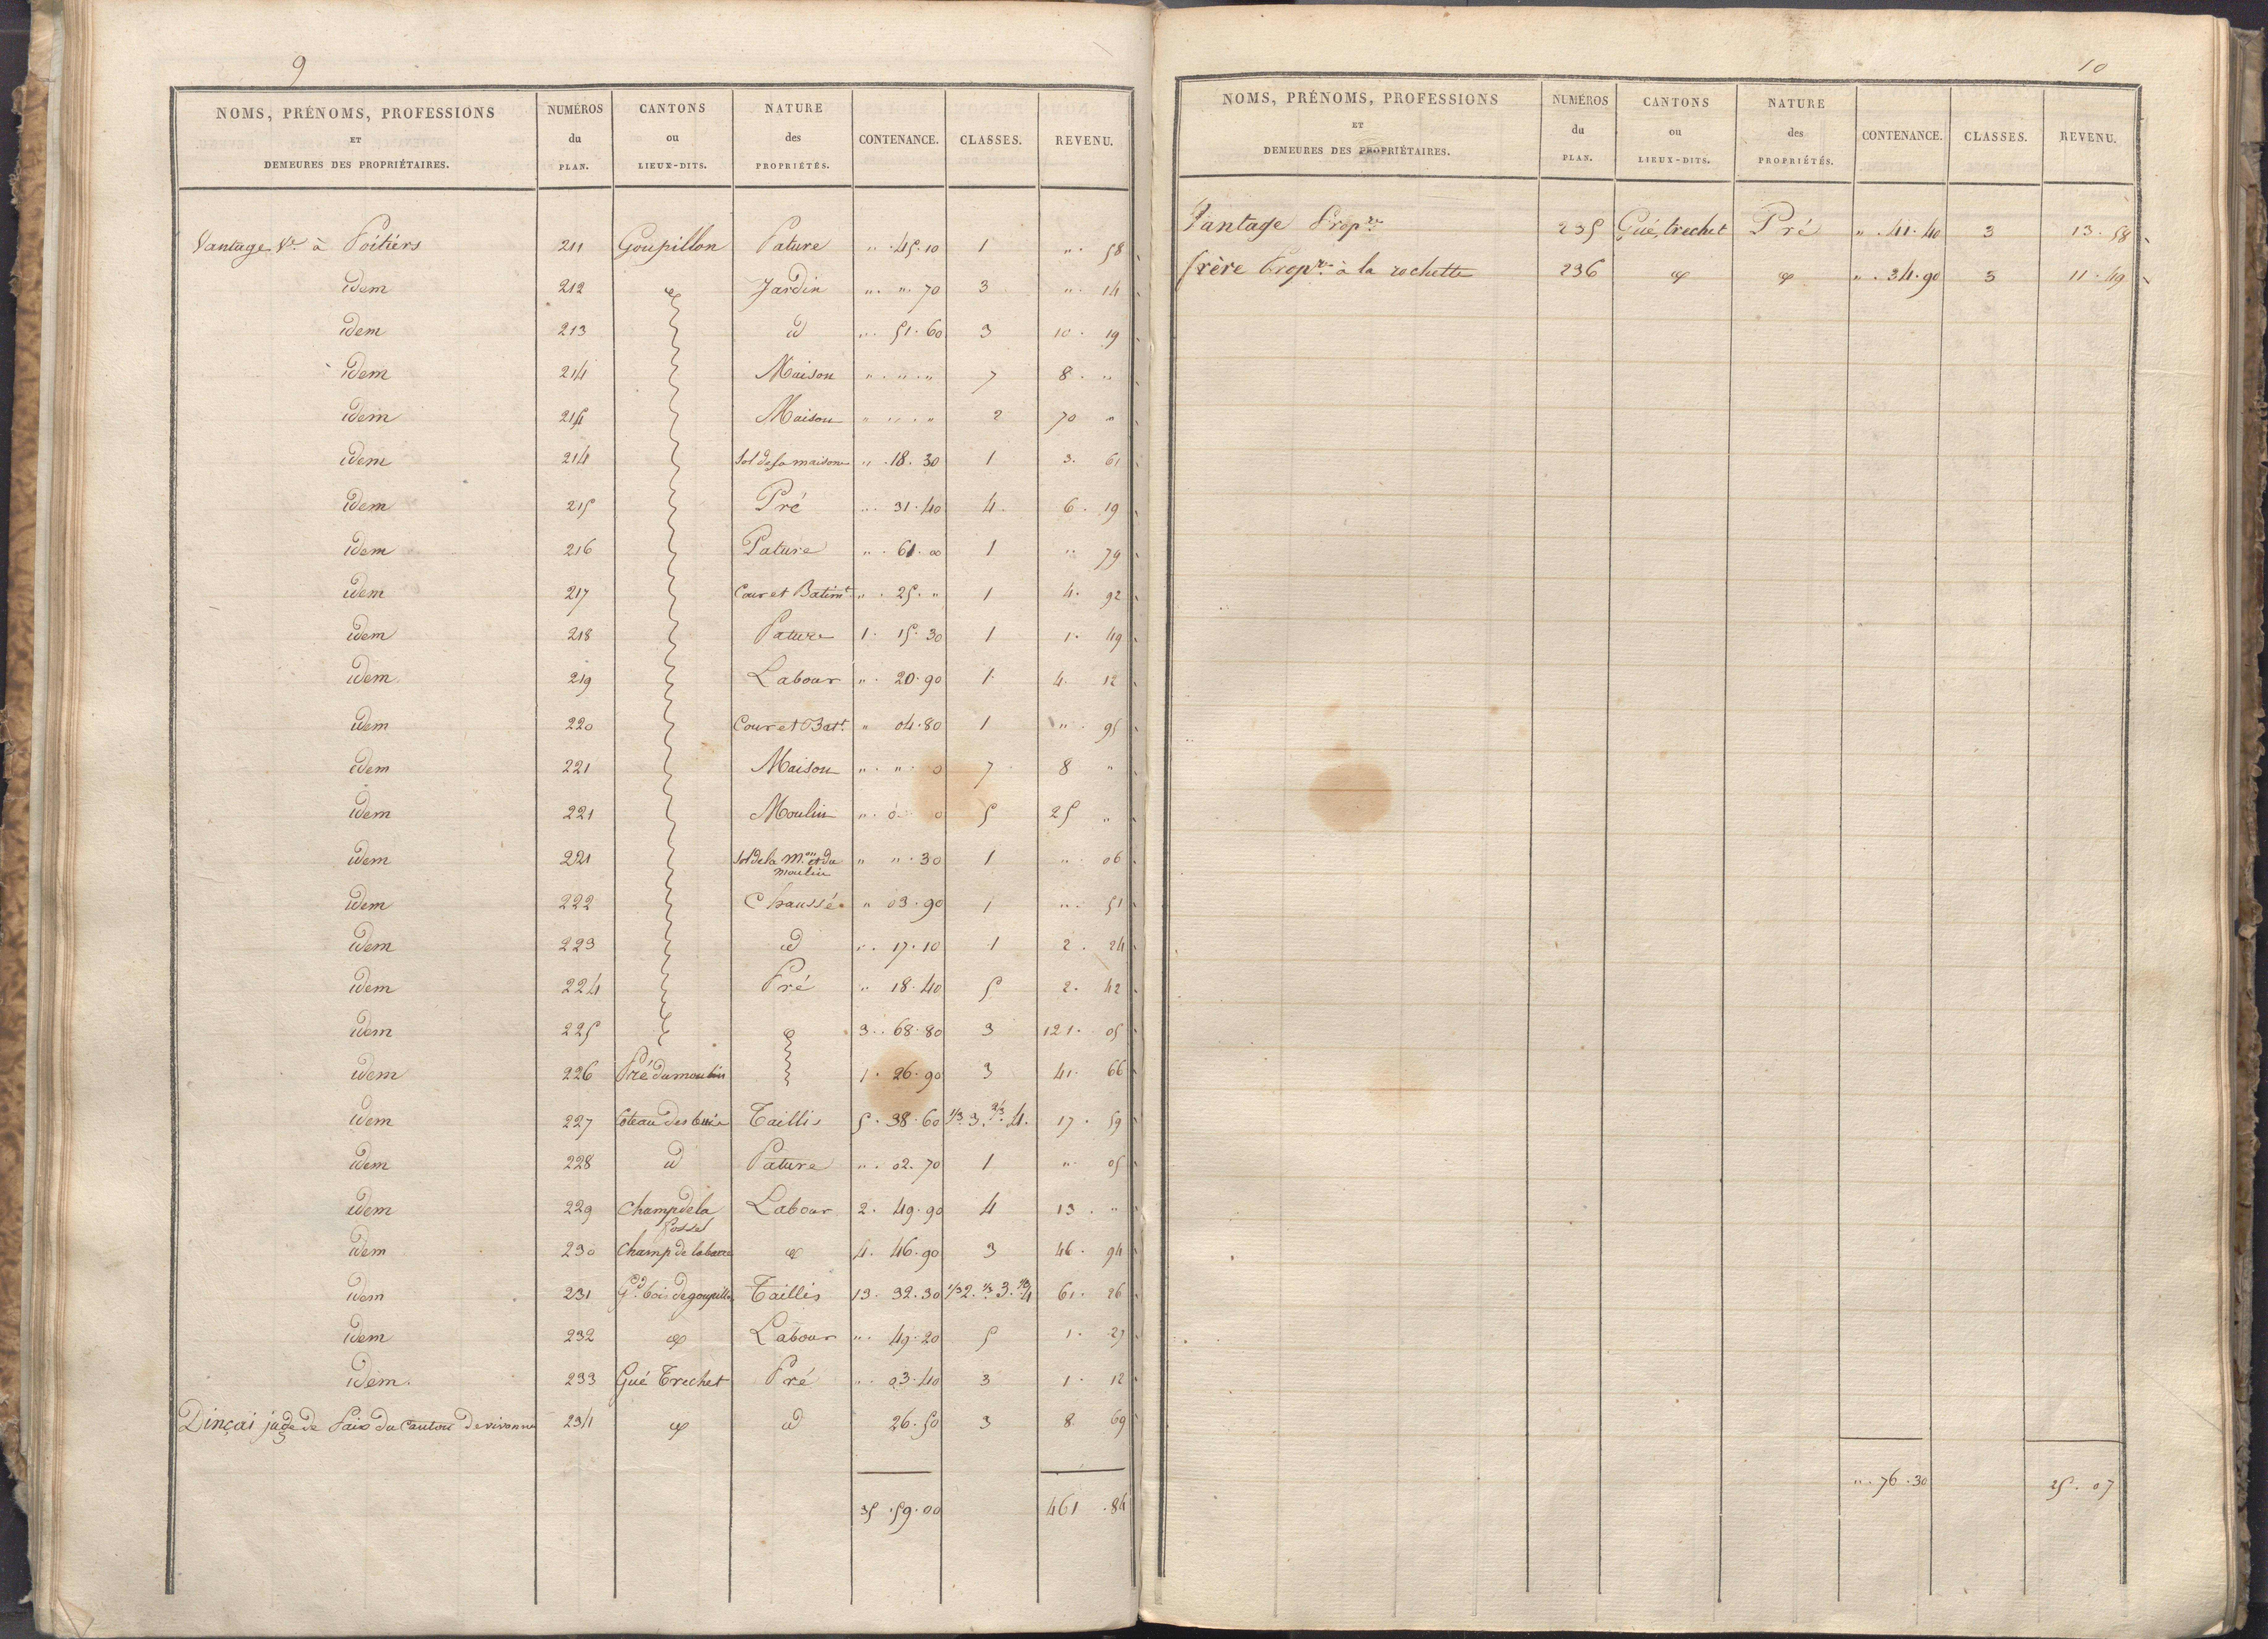 9
NOMS, PRÉNOMS, PROFESSIONS ET DEMEURES DES PROPRIÉTAIRES. NUMÉROS du PLAN. CANTONS ou LIEUX-DITS. NATURE des PROPRIÉTÉS. CONTENANCE. CLASSES. REVENU.
Vantage Ve à Poitiers 211 Goupillon Pature ". 45. 10 1 ". 58
idem 212 Jardin ". ". 70 3 ". 14
idem 213 id ". 51. 60 3 10. 19
idem 214 Maison ". ". " 7 8. "
idem 214 Maison ". ". " 2 70 "
idem 214 Sol de sa maison ". 18. 30 1 3. 61
idem 215 Pré ". 31. 40 4. 6. 19
idem 216 Pature ". 61. 00 1 ". 79
idem 217 Cour et Batimt ". 25. " 1 4. 92
idem 218 Pature 1. 15. 30 1 1. 49
idem 219 Labour ". 20. 90 1. 4. 12
idem 220 Cour et Batt. " 04. 80 1 ". 95
idem 221 Maison ". ". 0 7 8 "
idem 221 Moulin ". 0. 0 5 25 "
idem 221 Sol de la Mon et du moulin " ". 30 1 ". 06
idem 222 Chaussée " 03. 90 1 ". 51
idem 223 id ". 17. 10 1 2. 24
idem 224 Pré " 18. 40 5 2. 42
idem 225 3. 68. 80 3 121. 05
idem 226 Pré du moulin 1. 26. 90 3 41. 66
idem 227 Coteau des Taillis 5. 38. 60 1/3 3. 2/3 4. 17. 59
idem 228 id Pature ". 02. 70 1 " 05
idem 229 Champ de la fosse Labour 2. 49. 90 4 13. "
idem 230 Champ de la barre id 4. 46. 90 3 46. 94
idem 231 Gd bois de goupillon Taillis 13. 32. 30 1/3 2. 1/3 3. 1/3 4 61. 26
idem 232 id Labour ". 49. 20 5 1. 27
idem. 233 Gué Trechet Pré ". 03. 40 3 1. 12
Dinçai juge de Paix du Canton de vivonne 234 id id 26. 50 3 8. 69
35. 59. 00 461. 84
10
NOMS, PRÉNOMS, PROFESSIONS ET DEMEURES DES PROPRIÉTAIRES. NUMÉROS du PLAN. CANTONS ou LIEUX-DITS. NATURE des PROPRIÉTÉS. CONTENANCE. CLASSES. REVENU.
Vantage Propre 235 Gué trechet Pré ". 41. 40 3 13. 58
frère Propre à la rochette 236 id id ". 34. 90 3 11. 49
". 76. 30 25. 07